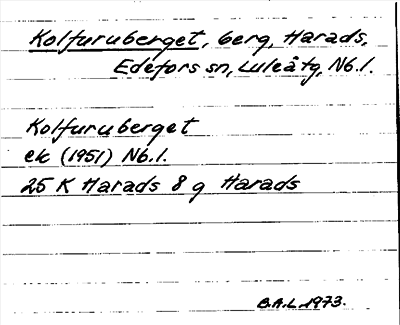 Kolfuruberget, berg, Harads,
Edefors sn, Luleå tg, Nb.l.
Kolfuruberget
ek (1951) Nb.l.
25 K Harads 8 g Harads
B.A.L 1973.